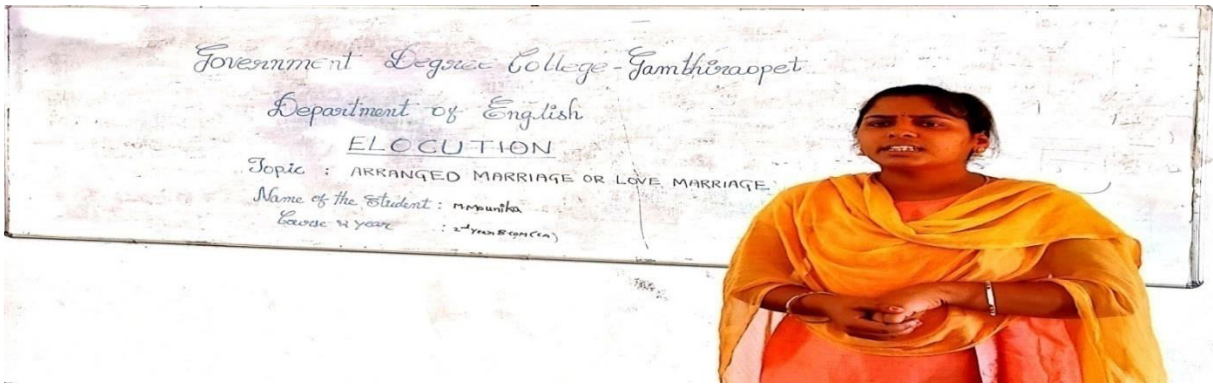 Government Degree College - Gamthiraopet
Department of English
ELOCUTION
Topic : ARRANGED MARRIAGE OR LOVE MARRIAGE
Name of the Student : M Mounika
Course & year : 2nd year B com (CA)